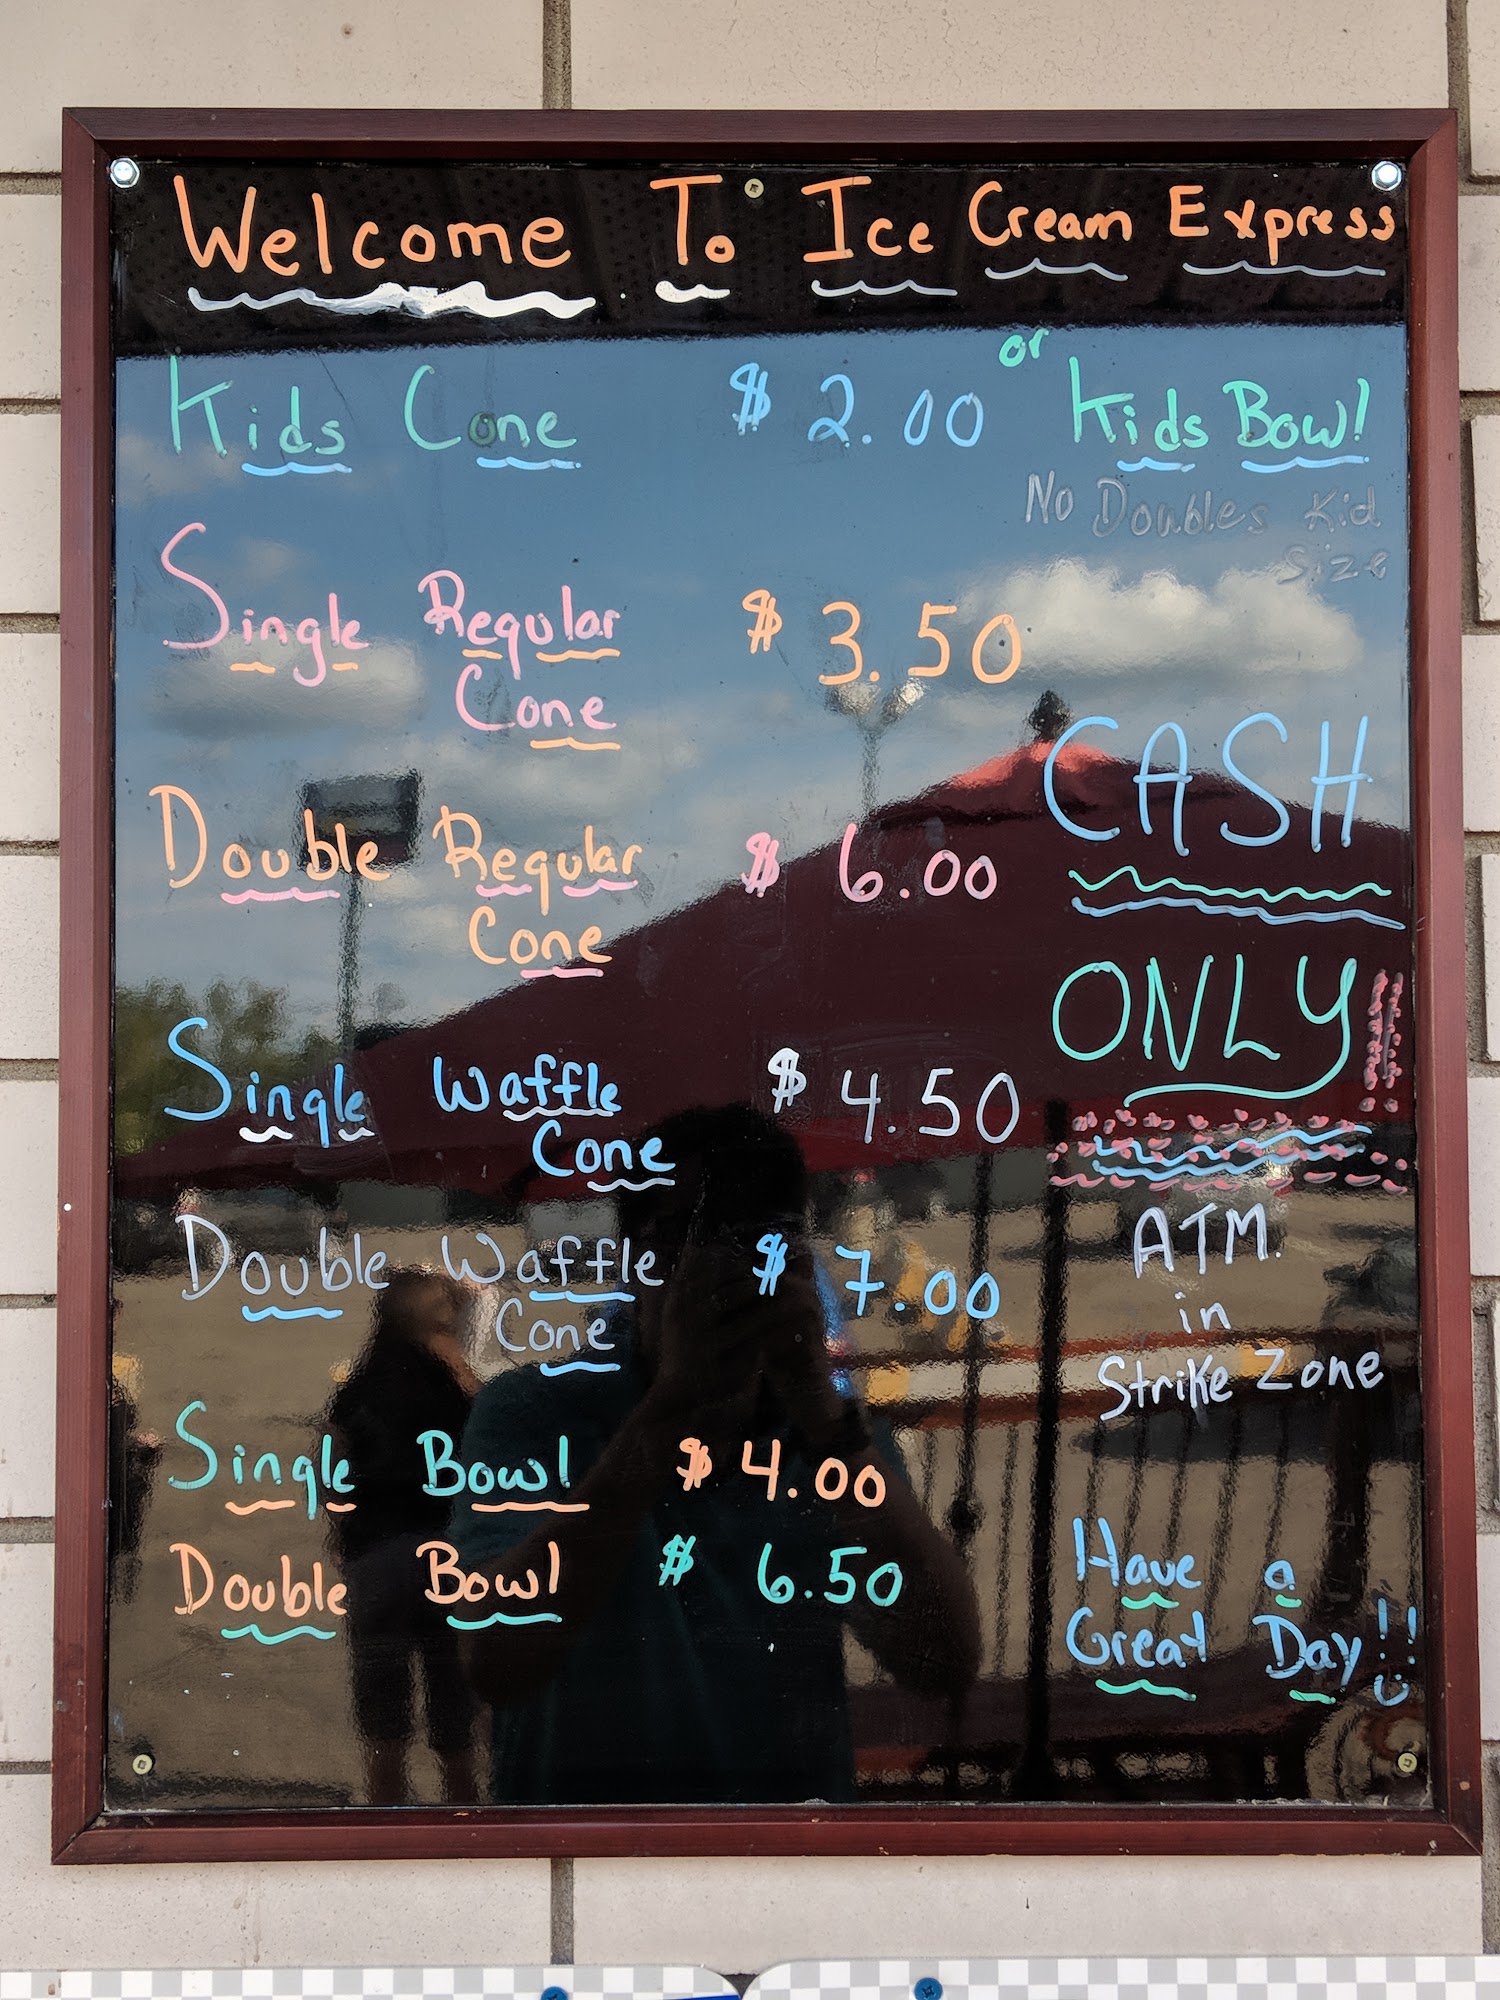 Welcome To Ice Cream Express
Kids Cone $ 2.00 or Kids Bowl!
No Doubles Kid
Size
Single Regular $ 3.50
Cone
Double Regular $ 6.00
Cone
Single Waffle $ 4.50
Cone
Double Waffle $ 7.00
Cone
Single Bowl $ 4.00
Double Bowl $ 6.50
CASH
ONLY!!
ATM
in
Strike Zone
Have a
Great Day!!